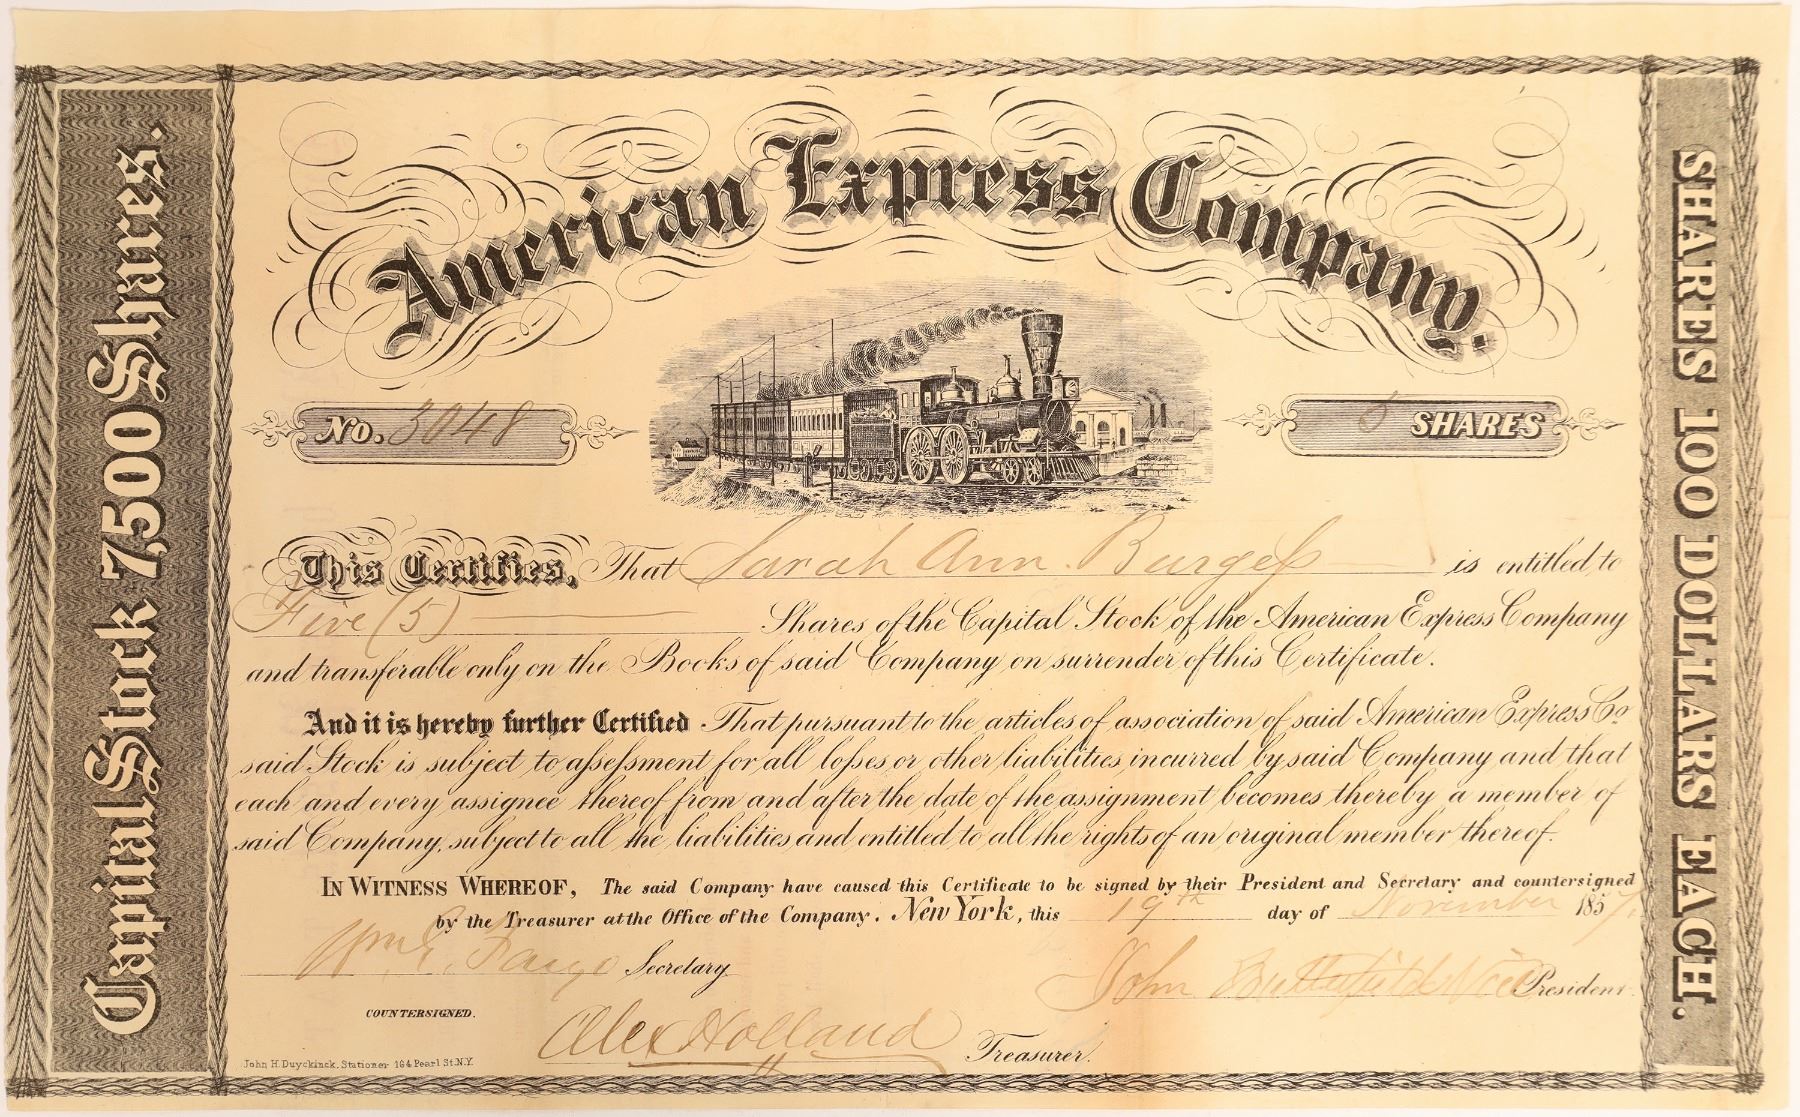 American Express Company.
Capital Stock 7,500 Shares.
SHARES 100 DOLLARS EACH.
No. 3048
SHARES
This Certifies, That Sarah Ann Burgess is entitled to
Five (5) Shares of the Capital Stock of the American Express Company
and transferable only on the Books of said Company on surrender of this Certificate.
And it is hereby further Certified That pursuant to the articles of association of said American Express Co.
said Stock is subject to assessment for all losses or other liabilities incurred by said Company and that
each and every assignee thereof from and after the date of the assignment becomes thereby a member of
said Company, subject to all the liabilities and entitled to all the rights of an original member thereof.
IN WITNESS WHEREOF, The said Company have caused this Certificate to be signed by their President and Secretary and countersigned
by the Treasurer at the Office of the Company. New York, this 19th day of November 1857.
Wm. G. Fargo Secretary John Butterfield Vice President.
COUNTERSIGNED.
Alex Holland Treasurer.
John H. Duyckinck, Stationer 164 Pearl St. N.Y.